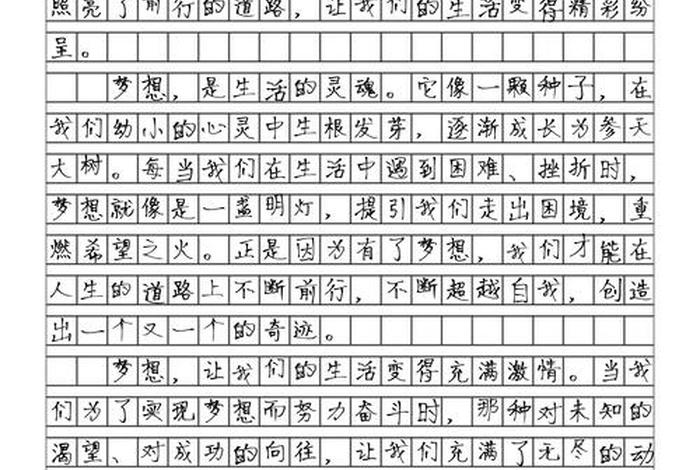 照亮了前行的道路，让我们的生活变得精彩纷
呈。
梦想，是生活的灵魂。它像一颗种子，在
我们幼小的心灵中生根发芽，逐渐成长为参天
大树。每当我们在生活中遇到困难、挫折时，
梦想就像是一盏明灯，提引我们走出困境，重
燃希望之火。正是因为有了梦想，我们才能在
人生的道路上不断前行，不断超越自我，创造
出一个又一个的奇迹。
梦想，让我们的生活变得充满激情。当我
们为了实现梦想而努力奋斗时，那种对未知的
渴望、对成功的向往，让我们充满了无尽的动